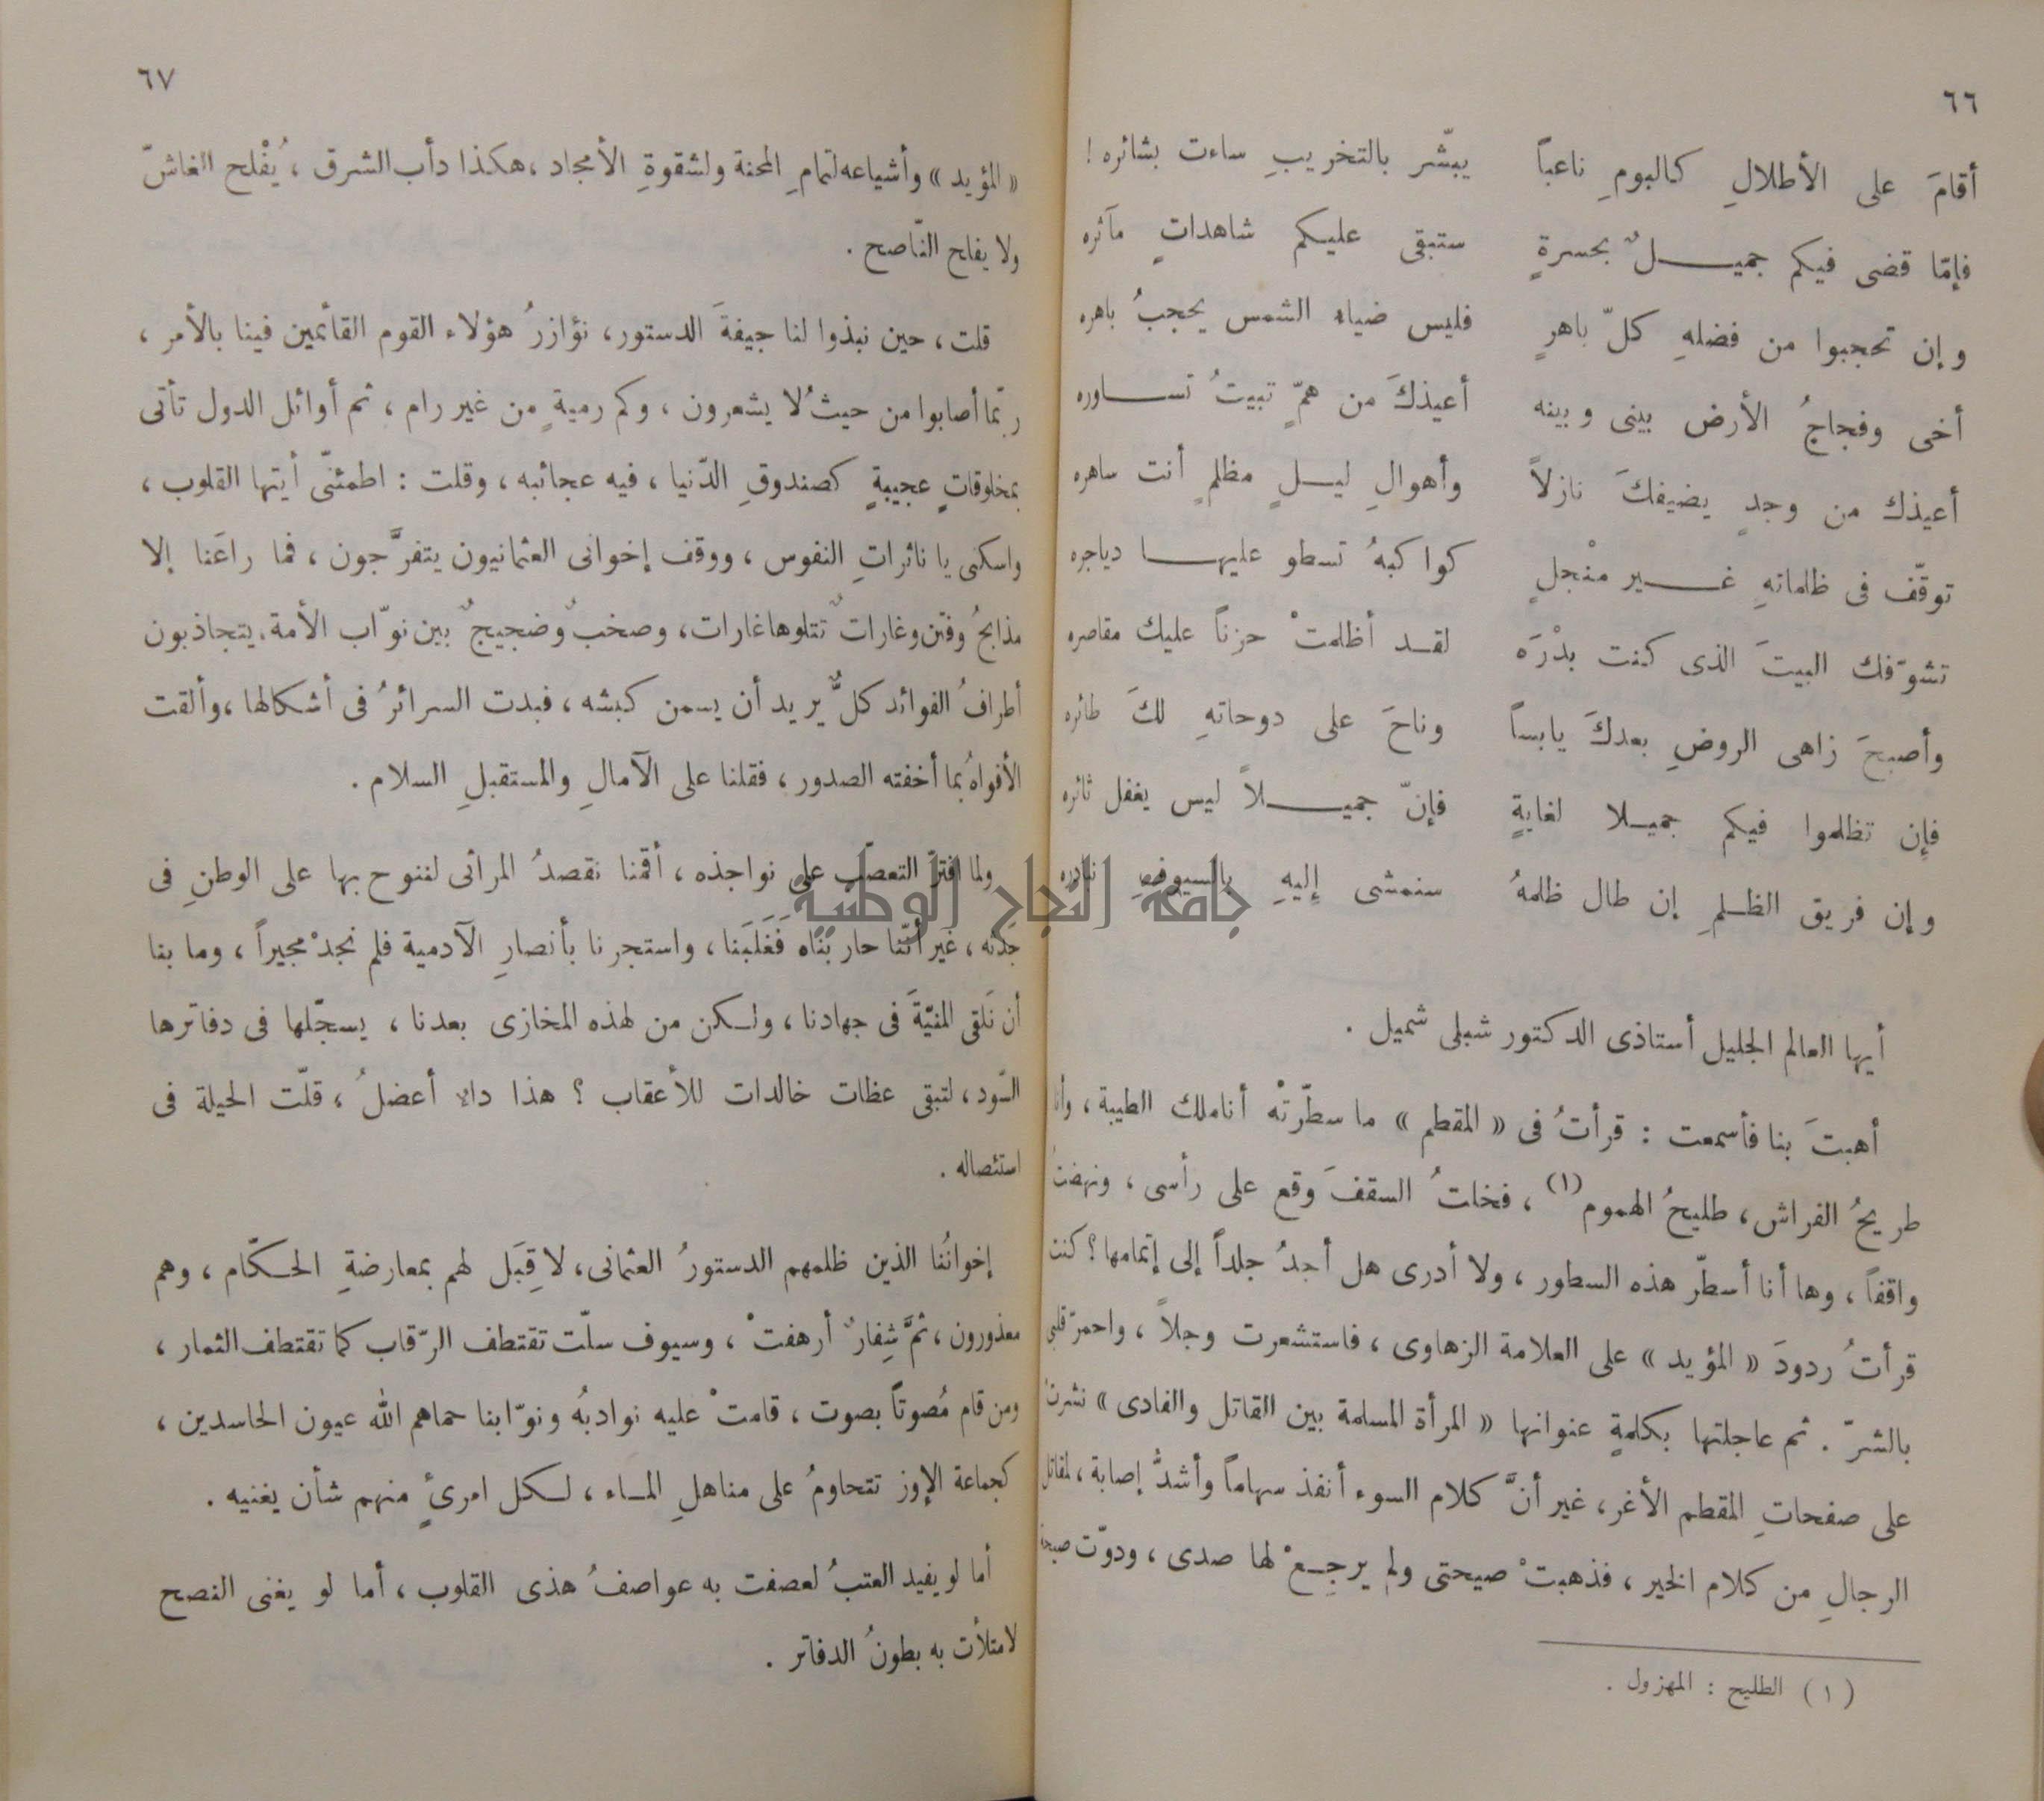 ٦٦
أقامَ على الأطلالِ كالبومِ ناعباً يبشّر بالتخريبِ ساءت بشائره !
فإمّا قضى فيكم جميـــلٌ بحسرةٍ ستبقى عليكم شاهداتٍ مآثره
وإن تحجبوا من فضلهِ كلّ باهرٍ فليس ضياء الشمس يحجبُ باهره
أخى وفجاجُ الأرض بينى وبينه أعيذكَ من همّ تبيتُ تســاوره
أعيذك من وجدٍ يضيفكَ نازلاً وأهوالِ ليــلٍ مظلمٍ أنت ساهره
توقّف فى ظلمائهِ غــير منْجلٍ كواكبهُ تسطو عليهــا دياجره
تشوّفك البيتَ الذى كنت بدْرَه لقــد أظلمتْ حزناً عليك مقاصره
وأصبحَ زاهى الروضِ بعدكَ يابساً وناحَ على دوحاتهِ لكَ طائره
فإن تظلموا فيكم جميــلا لغايةٍ فإنّ جميـــلاً ليس يغفل ثائره
وإن فريق الظــلمِ إن طال ظلمهُ سنمشى إليهِ بالسيوفِ
أيها العالم الجليل أستاذى الدكتور شبلى شميل .
أهبتَ بنا فأسمعت : قرأتُ فى « المقطم » ما سطّرتْه أناملك الطيبة ، وأنا
طريحُ الفراش، طليحُ الهموم (١) ، فخلتُ السقفَ وقع على رأسى ، ونهضتُ
واقفاً ، وها أنا أسطّر هذه السطور ، ولا أدرى هل أجدُ جلداً إلى إتمامها ؟ كنت
قرأتُ ردودَ « المؤيد » على العلامة الزهاوى ، فاستشعرت وجلاً ، واحمرّ قلبى
بالشرّ . ثم عاجلتها بكلمةٍ عنوانها « المرأة المسلمة بين القاتل والفادى » نشرتْ
على صفحاتِ المقطم الأغر ، غير أنَّ كلام السوء أنفذ سهاماً وأشدُّ إصابة ، لمقاتل
الرجالِ من كلام الخير ، فذهبتْ صيحتى ولم يرجعْ لها صدى ، ودوّت صيحة
(١) الطليح : المهزول .
٦٧
« المؤيد » وأشياعه لتمامِ المحنة ولشقوةِ الأمجاد ، هكذا دأب الشرق ، يُفْلح الغاشّ
ولا يفلح النّاصح .
قلت ، حين نبذوا لنا جيفةَ الدستور، نؤازرُ هؤلاء القوم القائمين فينا بالأمر ،
ربّما أصابوا من حيثُ لا يشعرون ، وكم رميةٍ من غير رام ، ثم أوائل الدول تأتى
بمخلوقاتٍ عجيبةٍ كصندوقِ الدّنيا ، فيه عجائبه ، وقلت : اطمئنّى أيتها القلوب ،
واسكنى يا ثائراتِ النفوس ، ووقف إخوانى العثمانيون يتفرَّجون ، فما راعَنا إلا
مذابحُ وفتن وغاراتٌ تتلوها غارات، وصخبٌ وضجيجٌ بين نوّاب الأمة، يتجاذبون
أطرافُ الفوائد كلٌّ يريد أن يسمن كبشه ، فبدت السرائرُ فى أشكالها ، وألقت
الأفواهُ بما أخفته الصدور ، فقلنا على الآمالِ والمستقبلِ السلام .
ولما افترّ التعصّب على نواجذه ، أقمنا نقصدُ المراثى لننوح بها على الوطنِ فى
جَدثه ، غير أنّنا حاربناه فَغَلَبَنا ، واستجرنا بأنصارِ الآدمية فلم نجدْ مجيراً ، وما بنا
أن نَلقى المنيّةَ فى جهادنا ، ولــكن من لهذه المخازى بعدنا ، يسجّلها فى دفاترها
السّود ، لتبقى عظات خالدات للأعقاب ؟ هذا داء أعضلُ ، قلّت الحيلة فى
استئصاله .
إخوانُنا الذين ظلمهم الدستورُ العثمانى، لا قِبَل لهم بمعارضةِ الحــكّام ، وهم
معذورون ، ثمَّ شِفارٌ أرهفتْ ، وسيوف سلّت تقتطف الرّقاب كما تقتطف الثمار ،
ومن قام مُصوتاً بصوت ، قامتْ عليه نوادبهُ ونوّابنا حماهم الله عيون الحاسدين ،
كجماعة الإوز تتحاومُ على مناهلِ المــاء ، لــكل امرئٍ منهم شأن يغنيه .
أما لو يفيد العتبُ لعصفت به عواصفُ هذى القلوب ، أما لو يغنى النصح
لامتلأت به بطونُ الدفاتر .
جامعة النجاح الوطنية